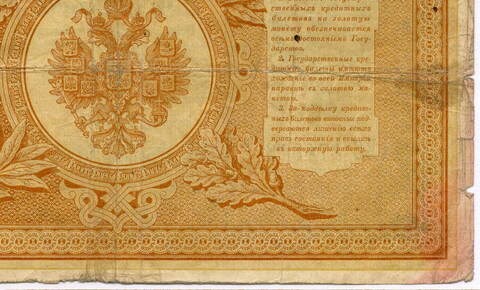 ственныхъ кредитныхъ
билетовъ на золотую
монету обезпечивается
всѣмъ достояніемъ Госу-
дарства.
2. Государственные кре-
дитные билеты имѣютъ
хожденіе во всей Имперіи
наравнѣ съ золотою мо-
нетою.
3. За поддѣлку кредит-
ныхъ билетовъ виновные под-
вергаются лишенію всѣхъ
правъ состоянія и ссылкѣ
въ каторжную работу.